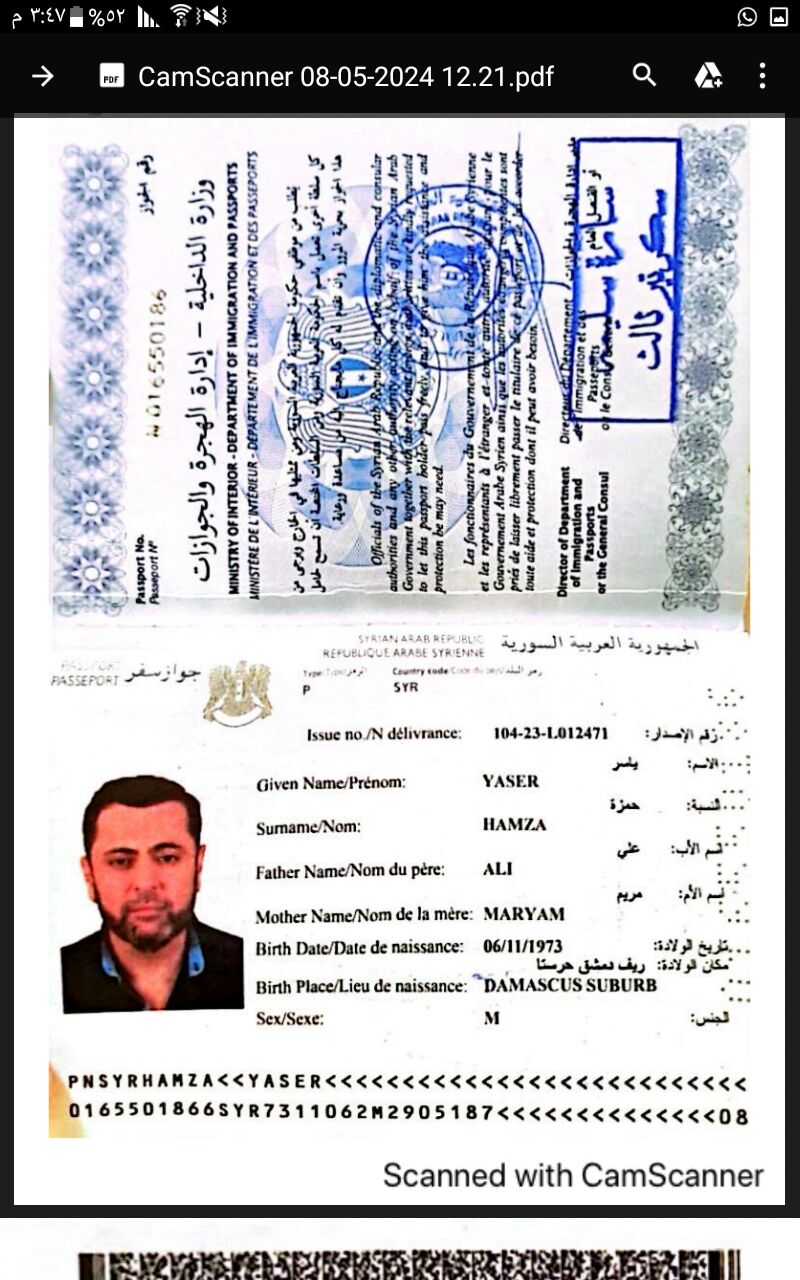 ٣:٤٧ م %٥٢
CamScanner 08-05-2024 12.21.pdf
رقم الجواز
N 016550186
Passport No.
Passeport N°
وزارة الداخلية – إدارة الهجرة والجوازات
MINISTRY OF INTERIOR - DEPARTMENT OF IMMIGRATION AND PASSPORTS
MINISTÈRE DE L'INTÉRIEUR - DÉPARTEMENT DE L'IMMIGRATION ET DES PASSEPORTS
Officials of the Syrian Arab Republic and its diplomatic and consular
authorities and any other authority acting on behalf of The Syrian Arab
Government together with the relevant foreign authorities are kindly requested
to let this passport holder pass freely and to give him the assistance and
protection he may need.
Les fonctionnaires du Gouvernement de la République Arabe Syrienne
et les représentants à l'étranger et toute autre autorité
Gouvernement Arabe Syrien ainsi que les autorités compétentes sont
priés de laisser librement passer le titulaire de ce passeport et de lui accorder
toute aide et protection dont il peut avoir besoin.
Director of Department
of Immigration and
Passports
or the General Consul
Directeur du Département
de l'Immigration et des
Passeports
ou le Consul
أو القنصل العام
سكرتير ثالث
SYRIAN ARAB REPUBLIC
REPUBLIQUE ARABE SYRIENNE
الجمهورية العربية السورية
PASSPORT
PASSEPORT
جواز سفر
Type/Type/الرمز
Country code/Code du pays/رمز البلد
P
SYR
Issue no./N délivrance: 104-23-L012471 رقم الإصدار:
الاسم: ياسر
Given Name/Prénom: YASER
النسبة: حمزة
Surname/Nom: HAMZA
اسم الأب: علي
Father Name/Nom du père: ALI
اسم الأم: مريم
Mother Name/Nom de la mère: MARYAM
Birth Date/Date de naissance: 06/11/1973 تاريخ الولادة:
مكان الولادة: ريف دمشق حرستا
Birth Place/Lieu de naissance: DAMASCUS SUBURB
Sex/Sexe: M الجنس:
PNSYRHAMZA<<YASER<<<<<<<<<<<<<<<<<<<<<<<<<<<
0165501866SYR7311062M2905187<<<<<<<<<<<<<<08
Scanned with CamScanner